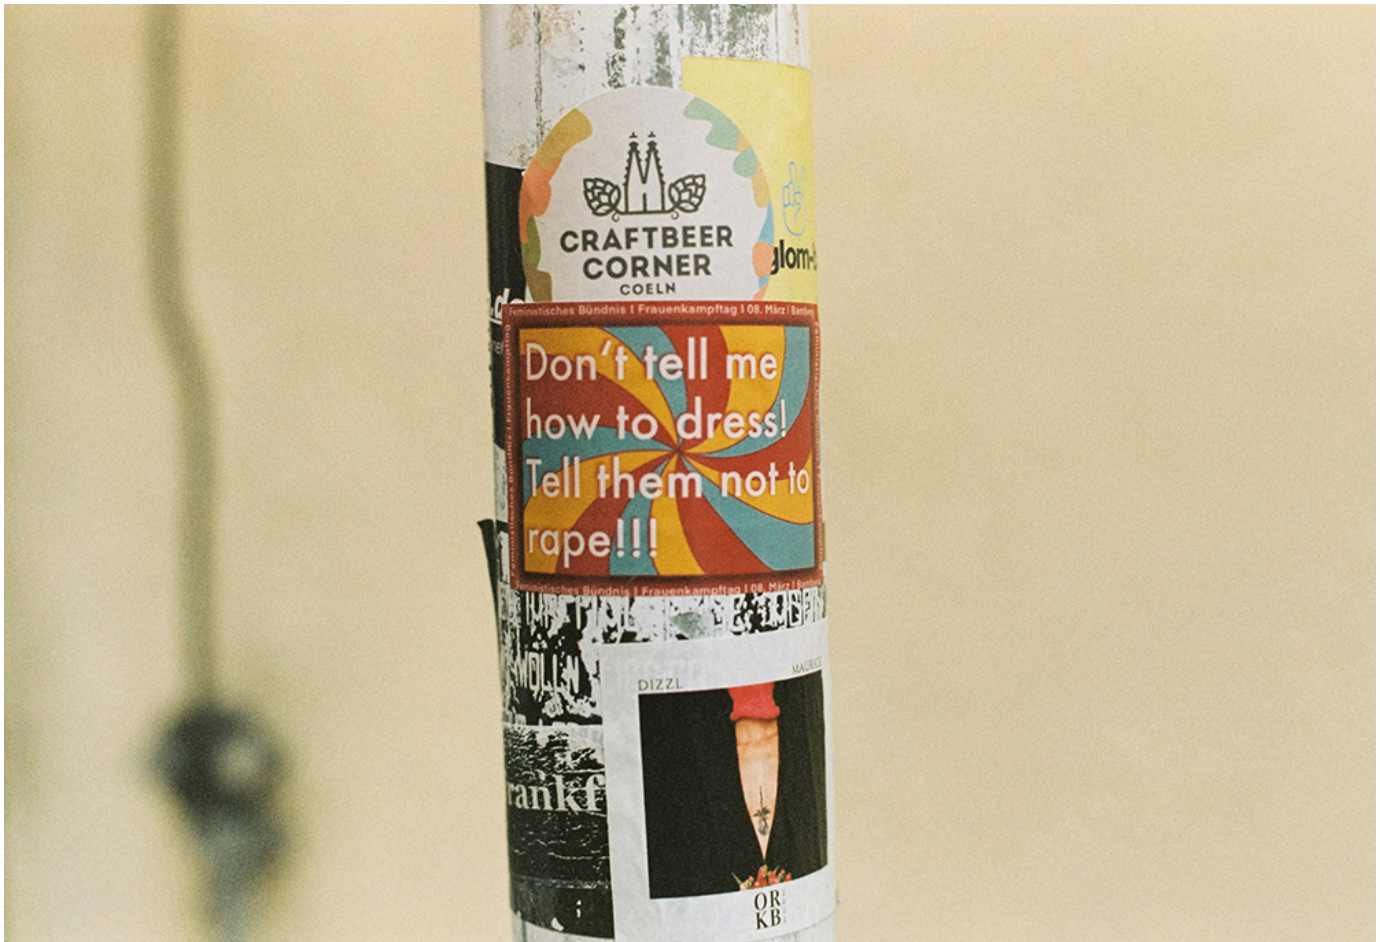 CRAFTBEER
CORNER
COELN
glom-
Feministisches Bündnis | Frauenkampftag | 08. März | Bamberg
Don't tell me
how to dress!
Tell them not to
rape!!!
Feministisches Bündnis | Frauenkampftag | 08. März | Bamberg
WÖLLN
MAURICE
DIZZL
rankf
OR
KB